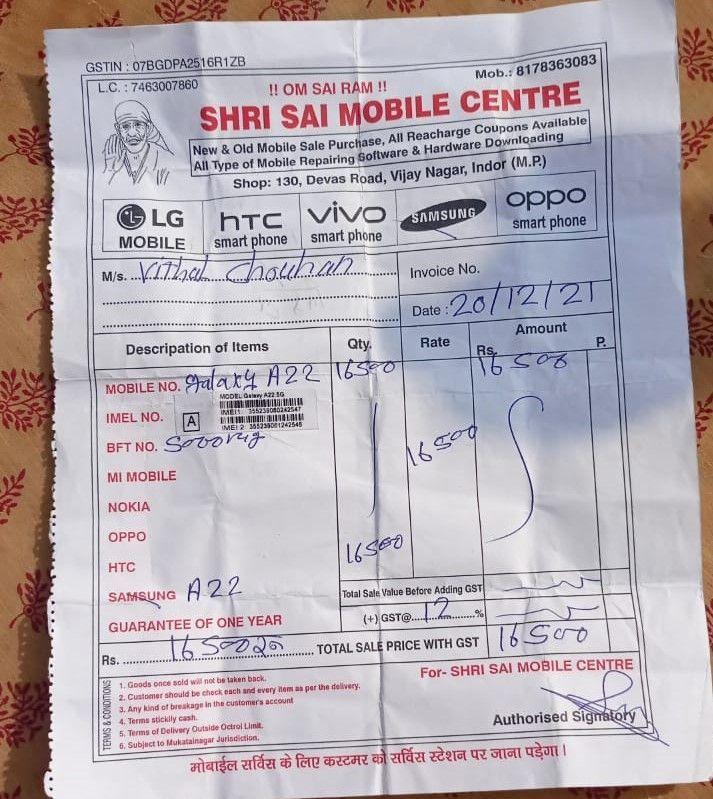 GSTIN : 07BGDPA2516R1ZB
L.C. : 7463007860
!! OM SAI RAM !!
Mob.: 8178363083
SHRI SAI MOBILE CENTRE
New & Old Mobile Sale Purchase, All Reacharge Coupons Available
All Type of Mobile Repairing Software & Hardware Downloading
Shop: 130, Devas Road, Vijay Nagar, Indor (M.P.)
LG MOBILE
hTC smart phone
vivo smart phone
SAMSUNG
oppo smart phone
M/s. Vithal Chouhan
Invoice No.
Date : 20/12/21
Descripation of Items Qty. Rate Amount
Rs. P.
MOBILE NO. Galaxy A22 16500 16500
MODEL Galaxy A22 5G
IMEL NO. A
IMEI 1
IMEI 2
BFT NO.
16500
MI MOBILE
NOKIA
OPPO
16500
HTC
SAMSUNG A22
Total Sale Value Before Adding GST
GUARANTEE OF ONE YEAR
(+) GST@....12....%
Rs. 16500 TOTAL SALE PRICE WITH GST 16500
TERMS & CONDITIONS
1. Goods once sold will not be taken back.
2. Customer should be check each and every item as per the delivery.
3. Any kind of breakage in the customer's account
4. Terms stickily cash.
5. Terms of Delivery Outside Octroi Limit.
6. Subject to Mukatainagar Jurisdiction.
For- SHRI SAI MOBILE CENTRE
Authorised Signatory
मोबाईल सर्विस के लिए कस्टमर को सर्विस स्टेशन पर जाना पड़ेगा।